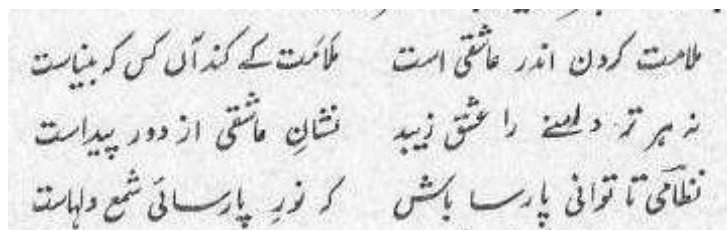 ملامت کردن اندر عاشقی است ملامت کے کند آں کس کہ بیناست
نہ ہر تر دامنے را عشق زیبد نشانِ عاشقی از دور پیداست
نظامی تا توانی پارسا باش کہ نورِ پارسائی شمع دلہاست